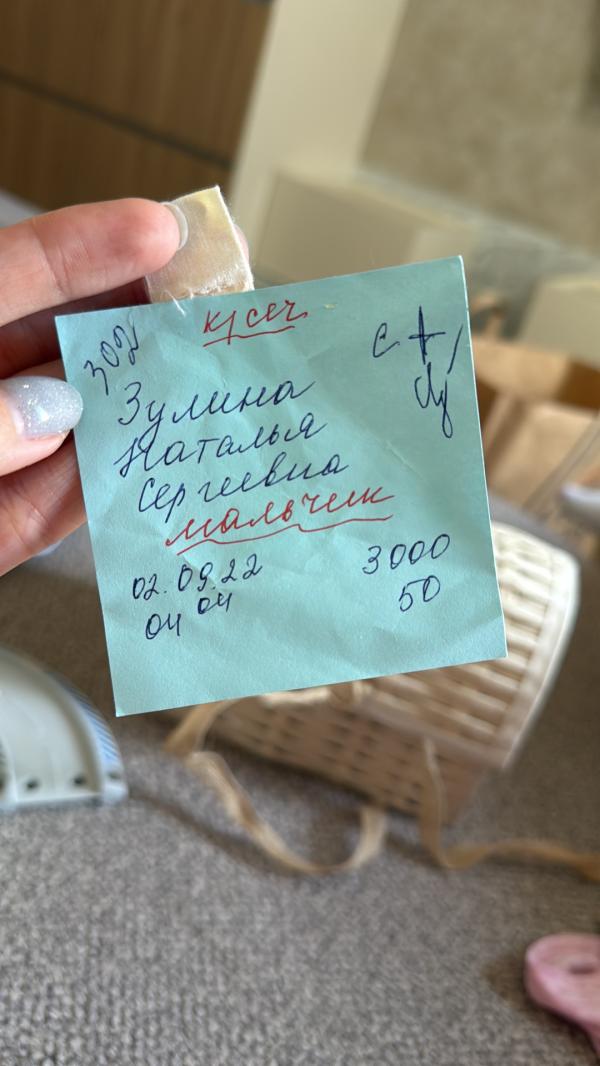 302
К/сеч
Зулина
Наталья
Сергеевна
мальчик
02.09.22 3000
04 04 50